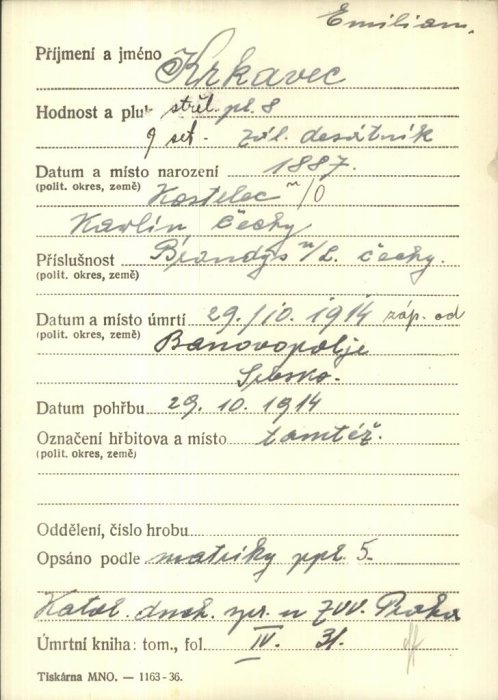 Emilian.
Příjmení a jméno Krkavec
Hodnost a pluk střel. pl. 8
9 set. zál. desátník
Datum a místo narození 1887.
(polit. okres, země) Kostelec n/O
Karlín Čechy
Příslušnost Brandýs n/L. Čechy.
(polit. okres, země)
Datum a místo úmrtí 29./10. 1914 záp. od
(polit. okres, země) Banovopolje
Srbsko.
Datum pohřbu 29. 10. 1914
Označení hřbitova a místo tamtéž.
(polit. okres, země)
Oddělení, číslo hrobu
Opsáno podle matriky ppl. 5.
Katol. duch. spr. u ZVV. Praha
Úmrtní kniha: tom., fol. IV. 31.
Tiskárna MNO. — 1163-36.